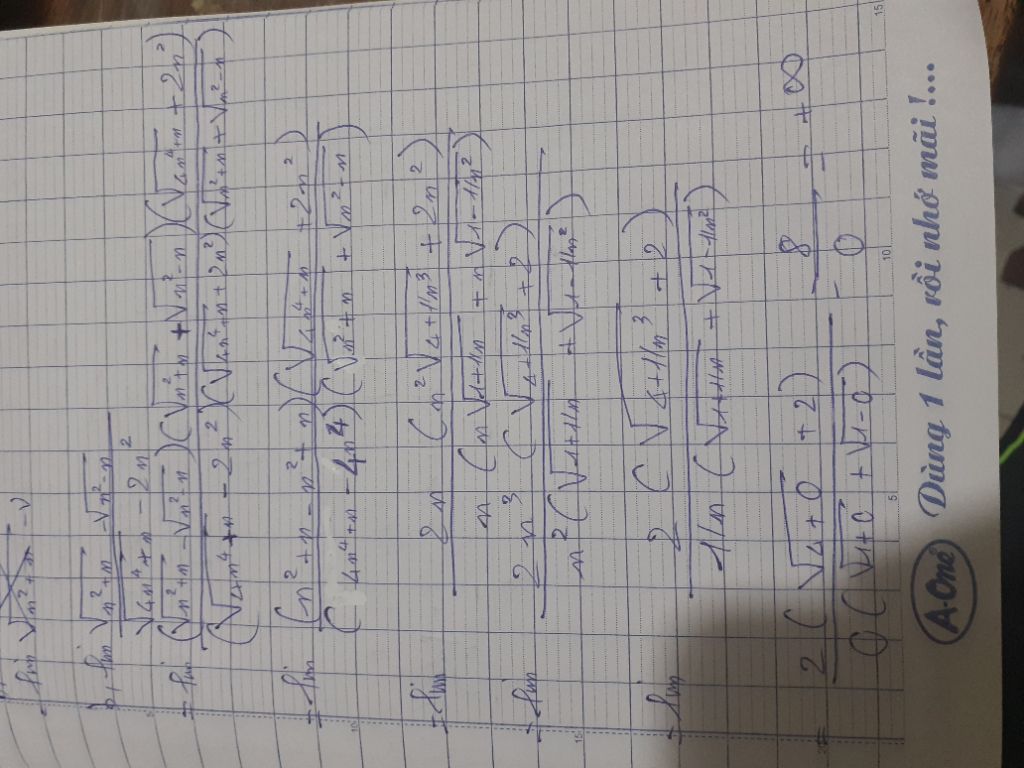 = lim √(n²+n) - √
b, lim (√(n²+n) - √(n²-n)) / (√(4n⁴+n) - 2n²)
= lim ((√(n²+n) - √(n²-n))(√(n²+n) + √(n²-n))(√(4n⁴+n) + 2n²)) / ((√(4n⁴+n) - 2n²)(√(4n⁴+n) + 2n²)(√(n²+n) + √(n²-n)))
= lim ((n²+n - n²+n)(√(4n⁴+n) + 2n²)) / ((4n⁴+n - 4n⁴)(√(n²+n) + √(n²-n)))
= lim (2n (n²√(4+1/n³) + 2n²)) / (n (n√(1+1/n) + n√(1-1/n²)))
= lim (2n³ (√(4+1/n³) + 2)) / (n² (√(1+1/n) + √(1-1/n²)))
= lim (2 (√(4+1/n³) + 2)) / (1/n (√(1+1/n) + √(1-1/n²)))
= (2 (√(4+0) + 2)) / (0 (√(1+0) + √(1-0))) = 8/0 = +∞
5 10 15
A-One Dùng 1 lần, rồi nhớ mãi !...